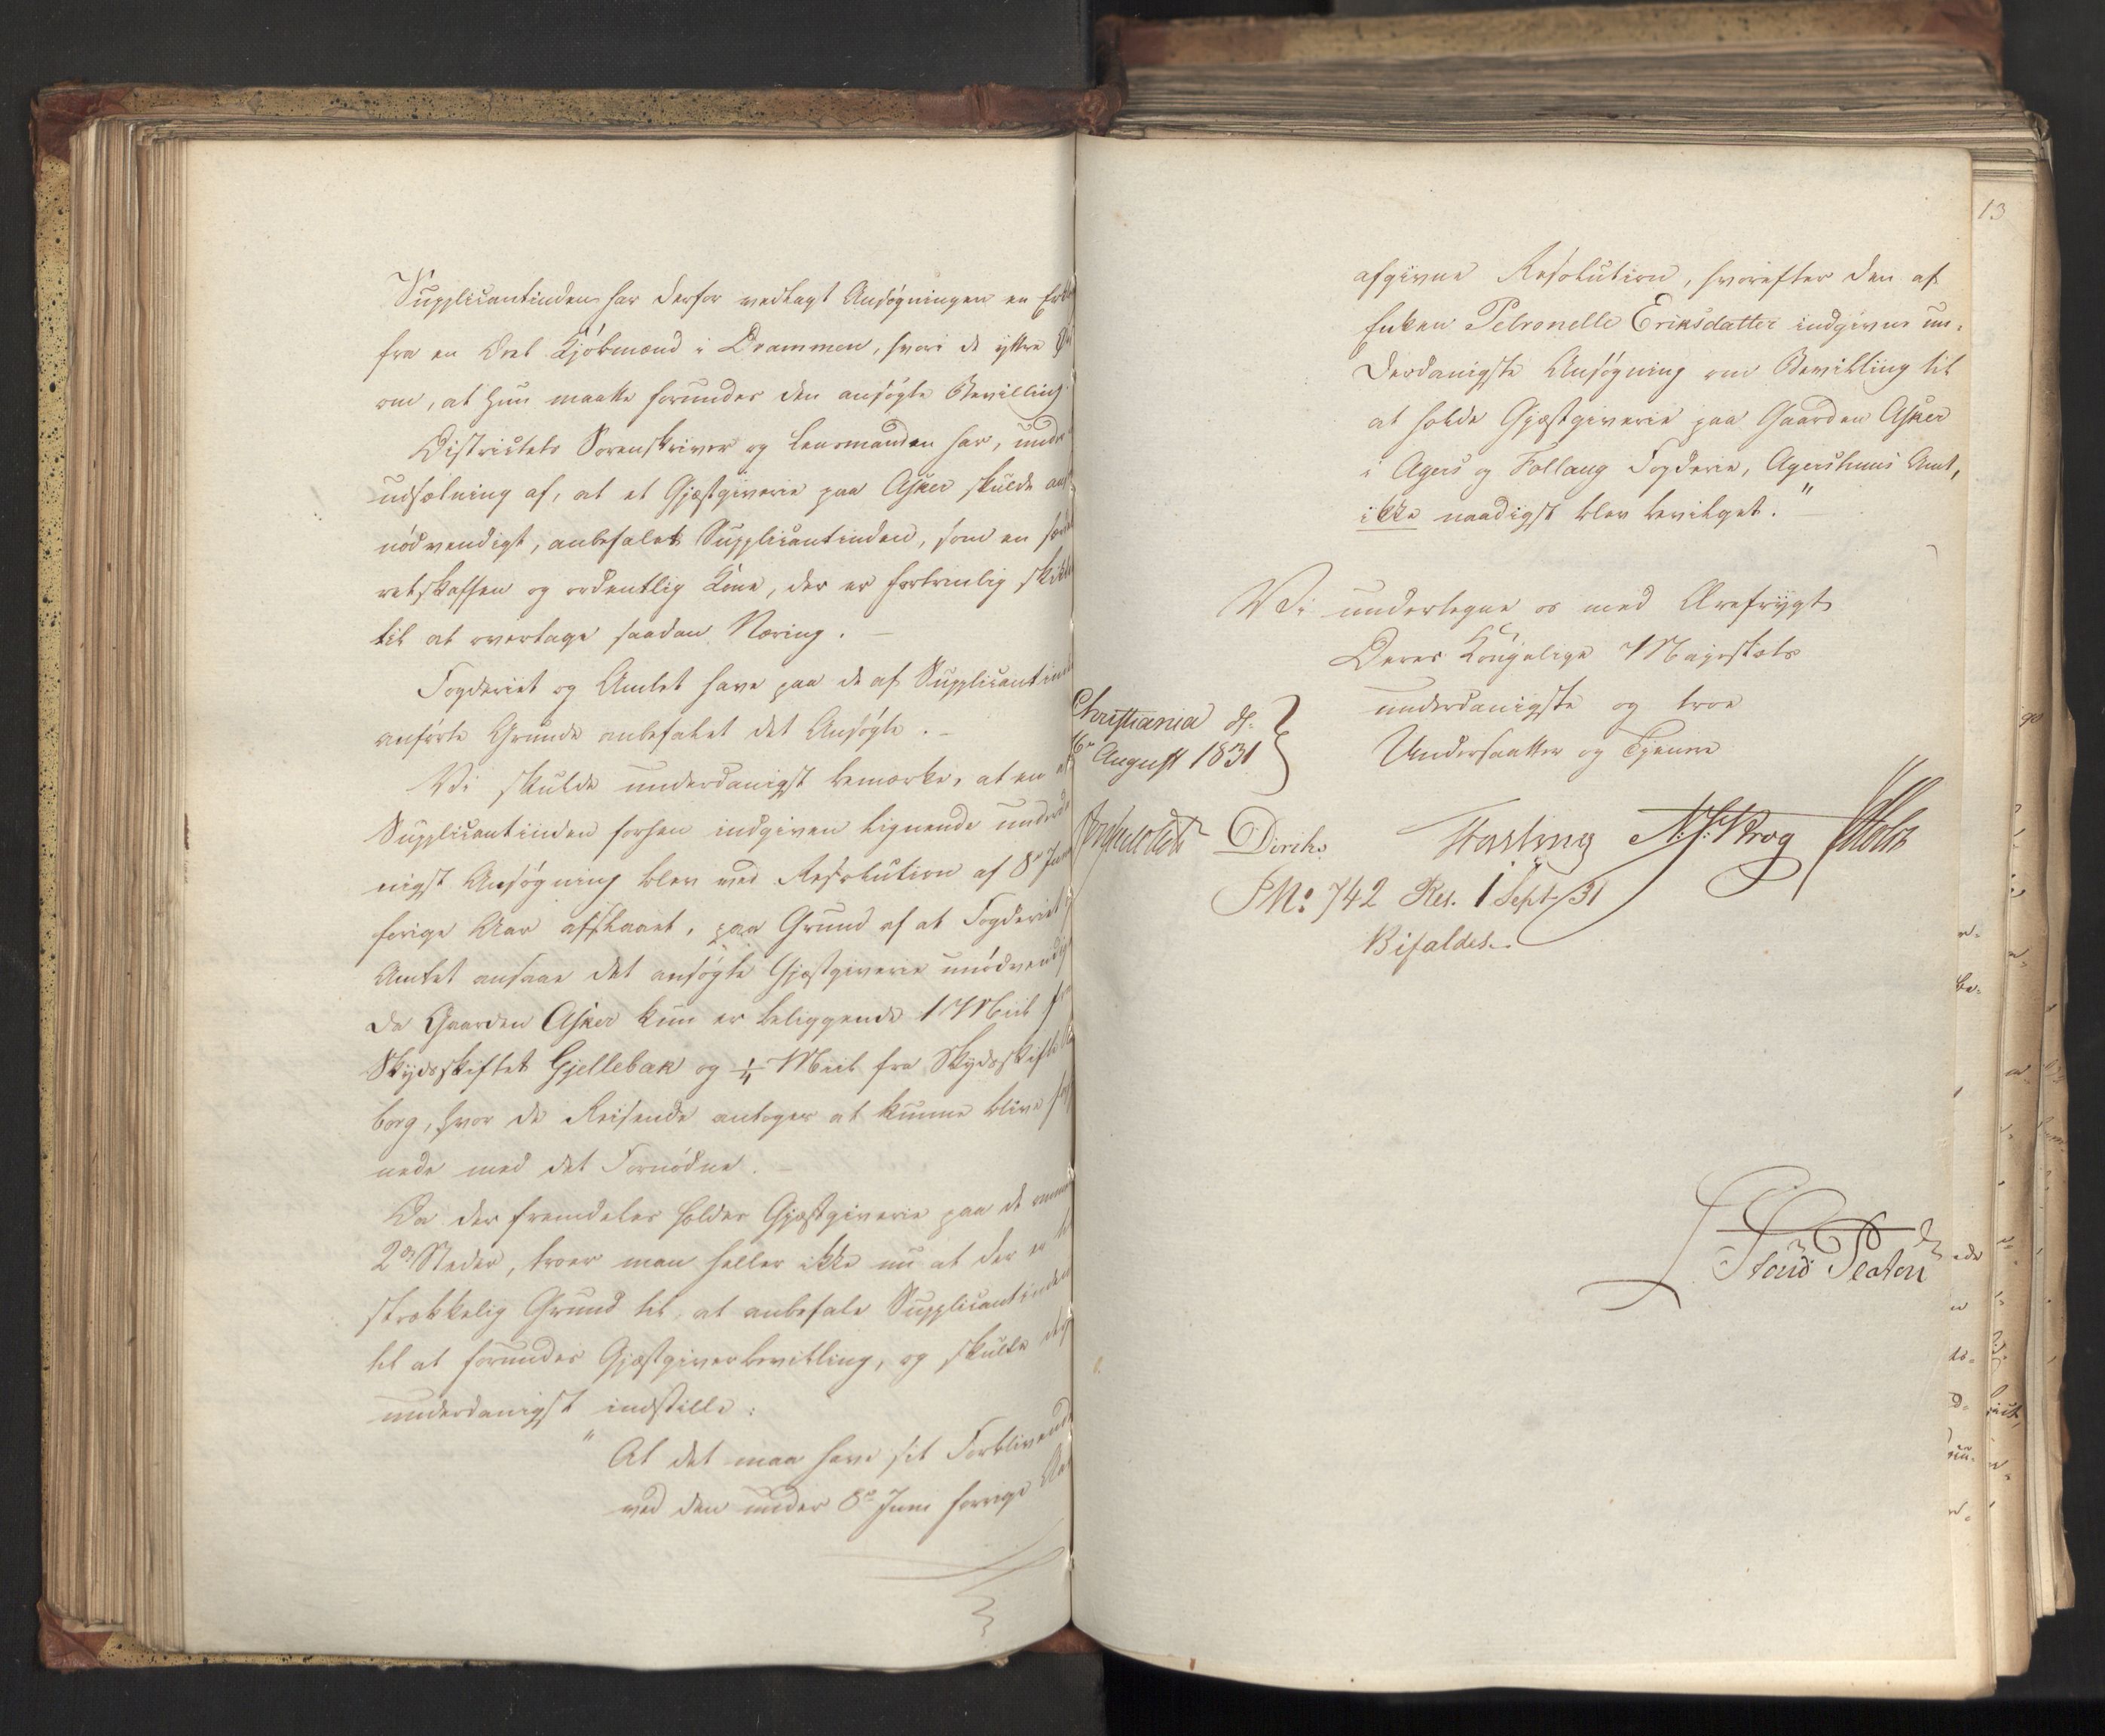 Supplicantinden har derfor vedlagt Ansøgningen en
fra en Deel Kjøbmænd i Drammen, hvori de yttre
om, at hun maatte forundes den ansøgte Bevilling.
Districtets Sorenskriver og Lensmanden har, under
udsætning af, at et Gjæstgiverie paa Asker skulde
nødvendigt, anbefalet Supplicantinden, som en
retskaffen og ordentlig Kone, der er fortrinlig
til at overtage saadan Næring. –
Fogderiet og Amtet have paa de af Supplicantinden
anførte Grunde anbefalet det Ansøgte. –
Vi skulde underdanigst bemærke, at en af
Supplicantinden forhen indgiven lignende underda
nigst Ansøgning blev ved Resolution af 8de Juni
forige Aar afslaaet, paa Grund af at Fogderiet og
Amtet ansaae det ansøgte Gjæstgiverie unødvendigt
da Gaarden Asker kun er beliggende 1 Miil fra
Skydsskiftet Gjellebæk og ¼ Miil fra Skydsskiftet
borg, hvor de Reisende antages at kunne blive
nede med det Fornødne. –
Da der fremdeles holdes Gjæstgiverie paa de
2de Steder, troer man heller ikke nu at der er til
strækkelig Grund til, at anbefale Supplicantinden
til at forundes Gjæstgiverbevilling, og skulde
underdanigst indstille:
" At det maa have sit Forblivende
ved den under 8de Juni forrige Aar
13
afgivne Resolution, hvorefter den af
Enken Petronelle Eriksdatter indgivne un-
derdanigste Ansøgning om Bevilling til
at holde Gjæstgiverie paa Gaarden Asker
i Agers og Follaug Fogderie, Agershuus Amt,
ikke naadigst blev bevilget."
Vi undertegne os med Ærefrygt
Deres Kongelige Majestæts
underdanigste og troe
Undersaatter og Tjenere
Christiania d.
August 1831
Diriks Fasting Krog Holst
No: 742 Res. 1 Sept. 31
Bifaldes.